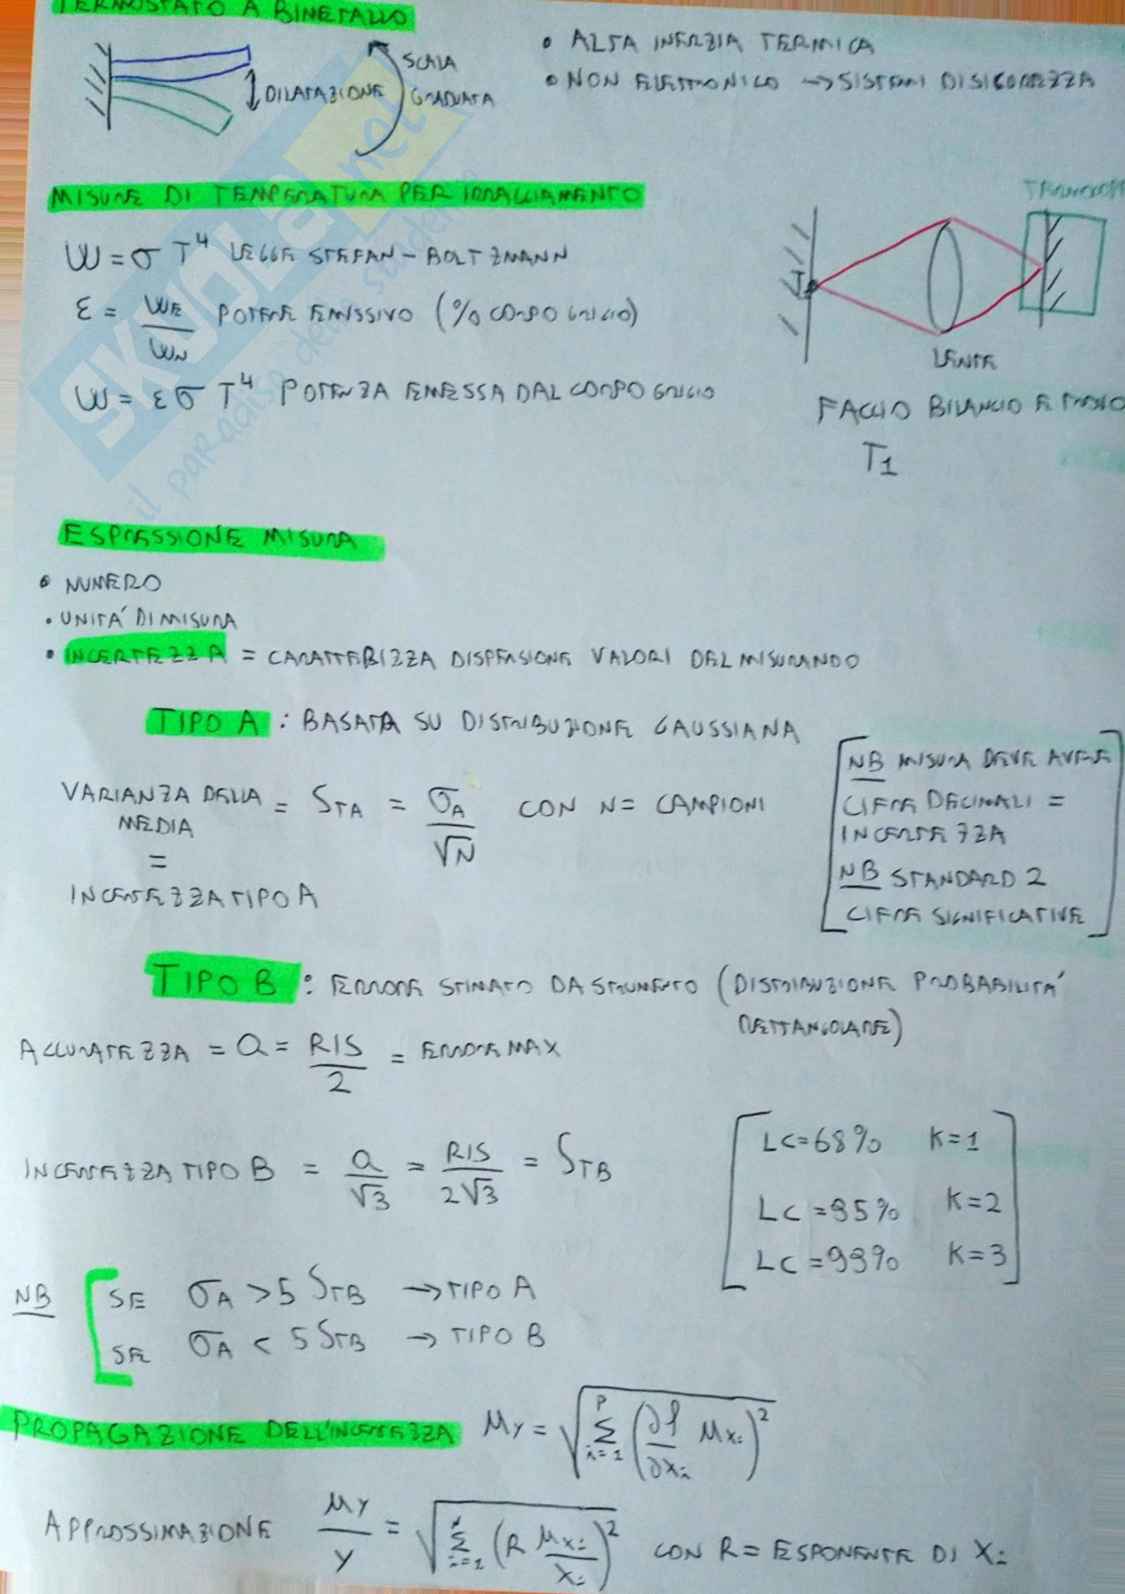 TERMOSTATO A BIMETALLO
• ALTA INERZIA TERMICA
• NON ELETTRONICO → SISTEMI DI SICUREZZA
DILATAZIONE
SCALA
GRADUATA
MISURE DI TEMPERATURA PER IRRAGGIAMENTO
W = σ T⁴ LEGGE STEFAN - BOLTZMANN
ε = WE / WN POTERE EMISSIVO (% CORPO GRIGIO)
W = ε σ T⁴ POTENZA EMESSA DAL CORPO GRIGIO
T
LENTE
FACCIO BILANCIO E TROVO
T1
ESPRESSIONE MISURA
• NUMERO
• UNITA' DI MISURA
• INCERTEZZA = CARATTERIZZA DISPERSIONE VALORI DEL MISURANDO
TIPO A : BASATA SU DISTRIBUZIONE GAUSSIANA
VARIANZA DELLA MEDIA = STA = σA / √N CON N = CAMPIONI
=
INCERTEZZA TIPO A
NB MISURA DEVE AVERE
CIFRE DECIMALI =
INCERTEZZA
NB STANDARD 2
CIFRE SIGNIFICATIVE
TIPO B : ERRORE STIMATO DA STRUMENTO (DISTRIBUZIONE PROBABILITA'
RETTANGOLARE)
ACCURATEZZA = a = RIS / 2 = ERRORE MAX
INCERTEZZA TIPO B = a / √3 = RIS / 2√3 = STB
LC = 68% K = 1
LC = 95% K = 2
LC = 99% K = 3
NB
SE σA > 5 STB → TIPO A
SE σA < 5 STB → TIPO B
PROPAGAZIONE DELL'INCERTEZZA μY = √ Σ i=1 P (∂f / ∂xi μxi)²
APPROSSIMAZIONE μY / Y = √ Σ i=1 (R μxi / xi)² CON R = ESPONENTE DI Xi
SKUOLA.net
il paradiso dello studente